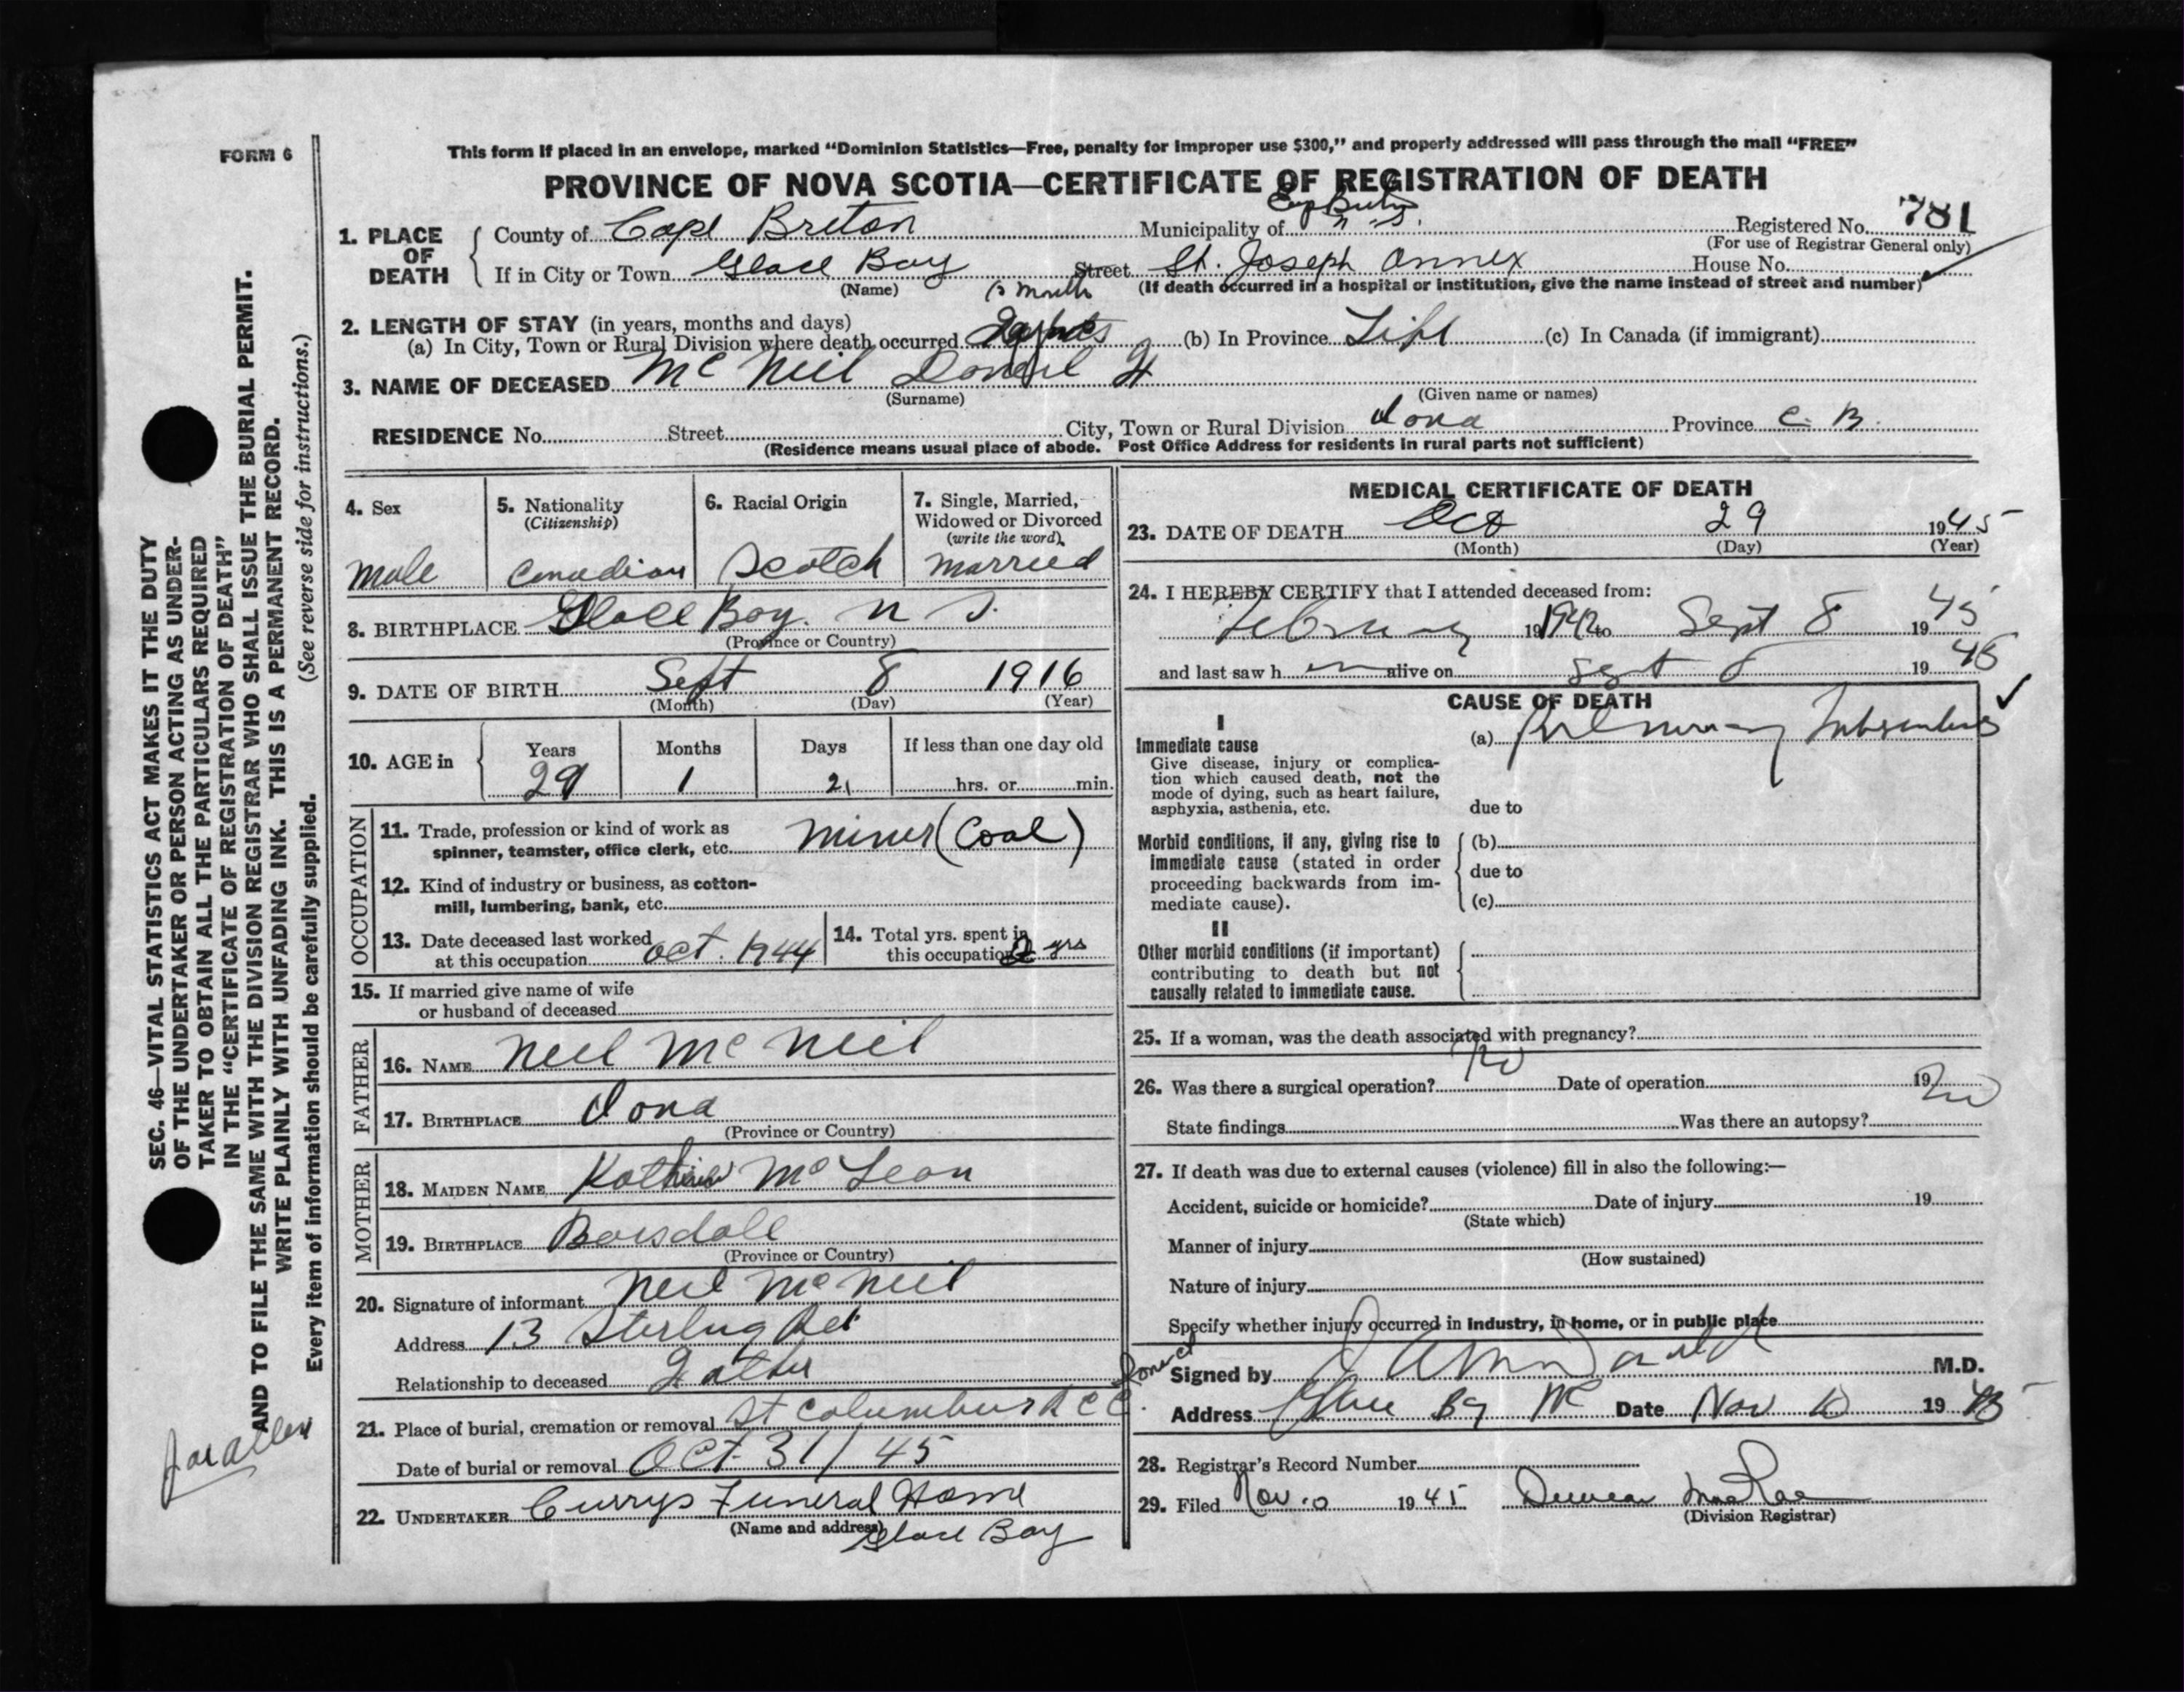 FORM 6
This form if placed in an envelope, marked "Dominion Statistics—Free, penalty for improper use $300," and properly addressed will pass through the mail "FREE"
PROVINCE OF NOVA SCOTIA—CERTIFICATE OF REGISTRATION OF DEATH
1. PLACE OF DEATH
County of Cape Breton Municipality of Cape Breton N.S. Registered No. 781
(For use of Registrar General only)
If in City or Town Glace Bay Street St. Joseph Annex House No.
(Name) (If death occurred in a hospital or institution, give the name instead of street and number)
2. LENGTH OF STAY (in years, months and days)
(a) In City, Town or Rural Division where death occurred months (b) In Province Life (c) In Canada (if immigrant)
3. NAME OF DECEASED McNeil Daniel
(Surname) (Given name or names)
RESIDENCE No. Street City, Town or Rural Division Iona Province C. B.
(Residence means usual place of abode. Post Office Address for residents in rural parts not sufficient)
4. Sex
Male
5. Nationality
(Citizenship)
Canadian
6. Racial Origin
Scotch
7. Single, Married,
Widowed or Divorced
(write the word)
Married
8. BIRTHPLACE Glace Bay. N S.
(Province or Country)
9. DATE OF BIRTH Sept 8 1916
(Month) (Day) (Year)
10. AGE in
Years Months Days If less than one day old
29 1 21 hrs. or min.
OCCUPATION
11. Trade, profession or kind of work as
spinner, teamster, office clerk, etc. Miner (Coal)
12. Kind of industry or business, as cotton-
mill, lumbering, bank, etc.
13. Date deceased last worked
at this occupation Oct. 1944
14. Total yrs. spent in
this occupation 2 yrs
15. If married give name of wife
or husband of deceased
FATHER
16. NAME Neil McNeil
17. BIRTHPLACE Iona
(Province or Country)
MOTHER
18. MAIDEN NAME McLean
19. BIRTHPLACE Boisdale
(Province or Country)
20. Signature of informant Neil McNeil
Address 13 Sterling Rd
Relationship to deceased Father
21. Place of burial, cremation or removal St Columbus R C C. Iona
Date of burial or removal Oct 31/45
22. UNDERTAKER Currys Funeral Home
(Name and address)
Glace Bay
MEDICAL CERTIFICATE OF DEATH
23. DATE OF DEATH Oct 29 1945
(Month) (Day) (Year)
24. I HEREBY CERTIFY that I attended deceased from:
February 1942 to Sept 8 1945
and last saw h im alive on Sept 8 1945
CAUSE OF DEATH
I
Immediate cause
Give disease, injury or complica-
tion which caused death, not the
mode of dying, such as heart failure,
asphyxia, asthenia, etc.
(a) Pulmonary Tuberculosis
due to
Morbid conditions, if any, giving rise to
immediate cause (stated in order
proceeding backwards from im-
mediate cause).
(b)
due to
(c)
II
Other morbid conditions (if important)
contributing to death but not
causally related to immediate cause.
25. If a woman, was the death associated with pregnancy?
26. Was there a surgical operation? No Date of operation 19
State findings Was there an autopsy? No
27. If death was due to external causes (violence) fill in also the following:—
Accident, suicide or homicide? Date of injury 19
(State which)
Manner of injury
(How sustained)
Nature of injury
Specify whether injury occurred in industry, in home, or in public place
Signed by M.D.
Address Glace Bay Date Nov 10 1945
28. Registrar's Record Number
29. Filed Nov. 10 1945 Duncan MacRae
(Division Registrar)
SEC. 46—VITAL STATISTICS ACT MAKES IT THE DUTY
OF THE UNDERTAKER OR PERSON ACTING AS UNDER-
TAKER TO OBTAIN ALL THE PARTICULARS REQUIRED
IN THE "CERTIFICATE OF REGISTRATION OF DEATH"
AND TO FILE THE SAME WITH THE DIVISION REGISTRAR WHO SHALL ISSUE THE BURIAL PERMIT.
WRITE PLAINLY WITH UNFADING INK. THIS IS A PERMANENT RECORD.
Every item of information should be carefully supplied. (See reverse side for instructions.)